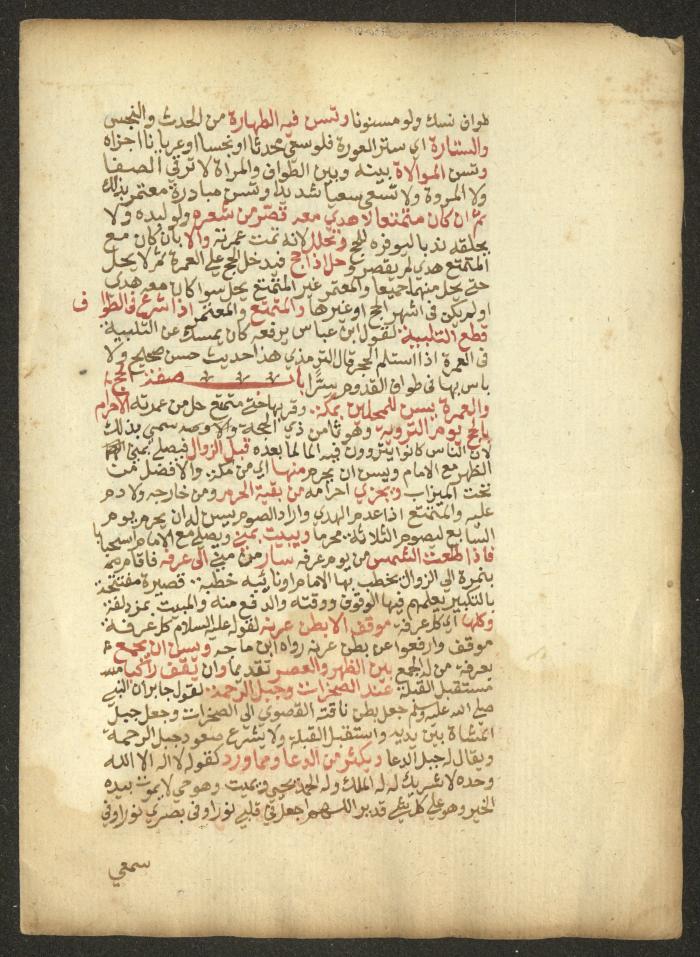 طواف نسك ولو مسنونا وتسن فيه الطهارة من الحدث والنجس
والستارة اي ستر العورة فلو سعى محدثا او نجسا او عريانا اجزاه
وتسن الموالاة بينه وبين الطواف والمراة لا ترقى الصفا
ولا المروة ولا تسعى سعيا شديدا وتسن مبادرة معتمر بذلك
ثم ان كان متمتعا لا هدي معه قصر من شعره ولو لبده ولا
يحلقه ندبا ليوفره للحج وتحلل لانه تمت عمرته والا بان كان مع
المتمتع هدي لم يقصر وحل اذا حج فيدخل الحج على العمرة ثم لا يحل
حتى يحل منهما جميعا والمعتمر غير المتمتع يحل سوا كان معه هدي
او لم يكن في اشهر الحج او غيرها والمتمتع والمعتمر اذا شرع في الطواف
قطع التلبية لقول ابن عباس يرفعه كان يمسك عن التلبية
في العمرة اذا استلم الحجر قال الترمذي هذا حديث حسن صحيح ولا
باس بها في طواف القدوم سرا باب صفة الحج
والعمرة يسن للمحلين بمكة وقربها حتى متمتع حل من عمرته الاحرام
بالحج يوم التروية وهو ثامن ذي الحجة سمي بذلك
لان الناس كانوا يتروون فيه الما لما بعده قبل الزوال فيصلي بمنى
الظهر مع الامام ويسن ان يحرم منها اي من مكة والافضل من
تحت الميزاب ويجزي احرامه من بقية الحرم ومن خارجه ولا دم
عليه والمتمتع اذا عدم الهدي واراد الصوم يسن له ان يحرم يوم
السابع ليصوم الثلاثة محرما ويبيت بمنى ويصلي مع الامام استحبابا
فاذا طلعت الشمس من يوم عرفه سار من منى الى عرفه فاقام
بنمرة الى الزوال يخطب بها الامام او نائبه خطبة قصيرة مفتتحة
بالتكبير يعلمهم فيها الوقوف ووقته والدفع منه والمبيت بمزدلفة
وكلها اي كل عرفة موقف الا بطن عرنة لقوله عليه السلام كل عرفة
موقف وارفعوا عن بطن عرنة رواه ابن ماجه ويسن ان يجمع
بعرفة من له الجمع بين الظهر والعصر تقديما وان يقف راكبا
مستقبل القبلة عند الصخرات وجبل الرحمة لقول جابر ان النبي
صلى الله عليه وسلم جعل بطن ناقته القصوى الى الصخرات وجعل جبل
المشاة بين يديه واستقبل القبلة ولا يشرع صعود جبل الرحمة
ويقال له جبل الدعا ويكثر من الدعا ومما ورد كقوله لا اله الا الله
وحده لا شريك له له الملك وله الحمد يحيي ويميت وهو حي لا يموت بيده
الخير وهو على كل شي قدير اللهم اجعل في قلبي نورا وفي بصري نورا وفي
سمعي